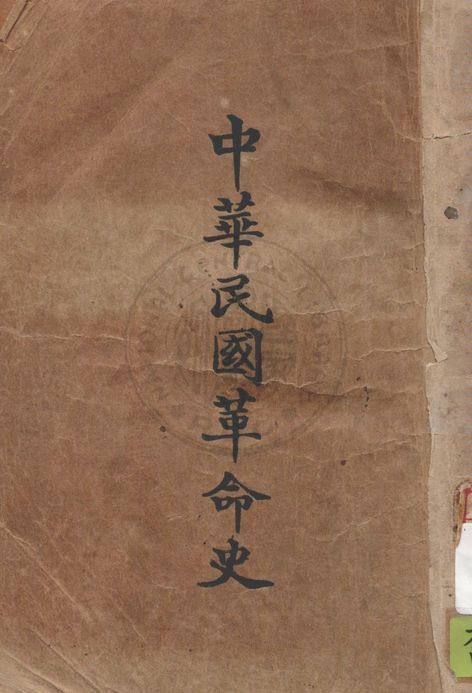 中華民國革命史